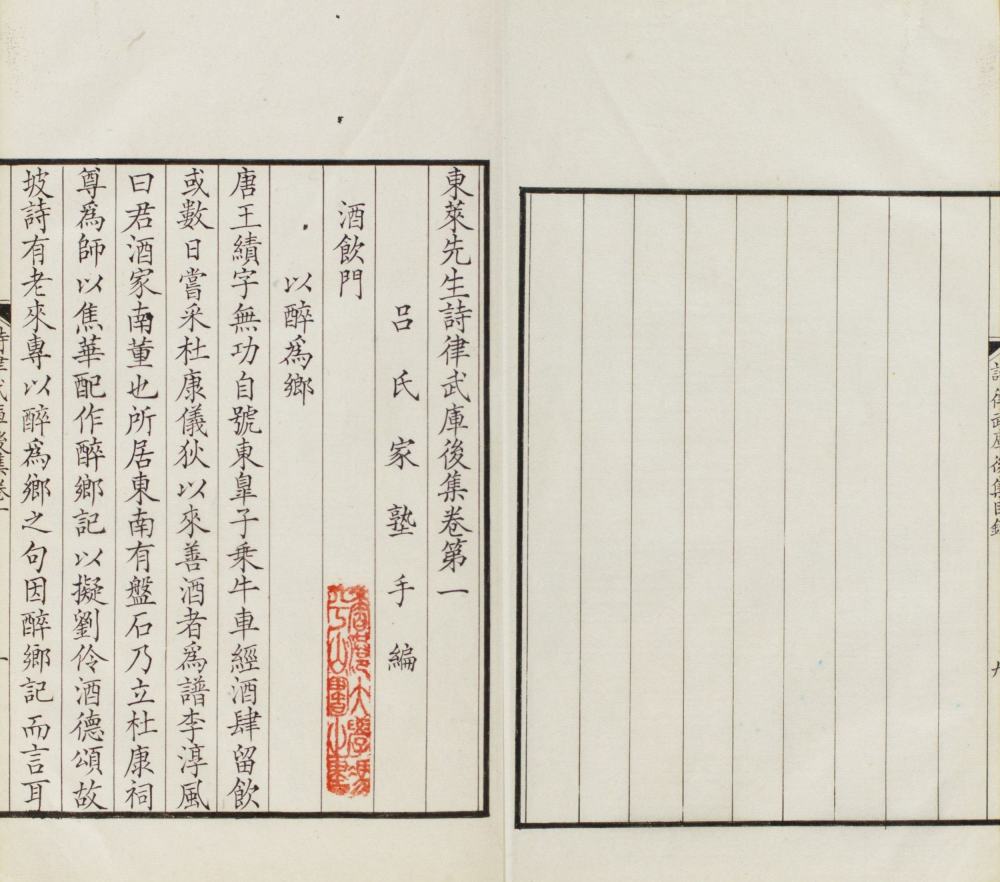 詩律武庫後集目錄
九
東萊先生詩律武庫後集卷第一
呂氏家塾手編
酒飲門
以醉爲鄉
唐王績字無功自號東臯子乘牛車經酒肆留飲
或數日嘗采杜康儀狄以來善酒者爲譜李淳風
曰君酒家南董也所居東南有盤石乃立杜康祠
尊爲師以焦華配作醉鄉記以擬劉伶酒德頌故
坡詩有老來專以醉爲鄉之句因醉鄉記而言耳
詩律武庫後集卷一
一
香港大學馮
平山圖書館